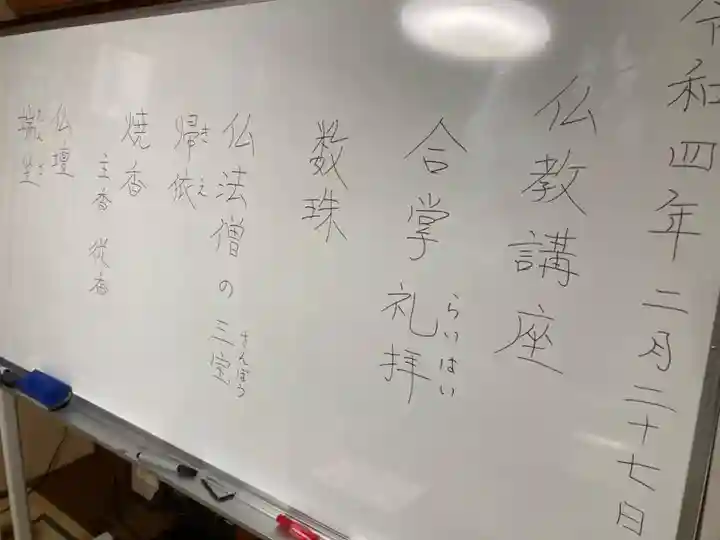 令和四年二月二十七日
仏教講座
合掌礼拝
らいはい
数珠
仏法僧の三宝
さんぼう
帰依
きえ
焼香
主香 従香
仏壇
端坐
たんざ